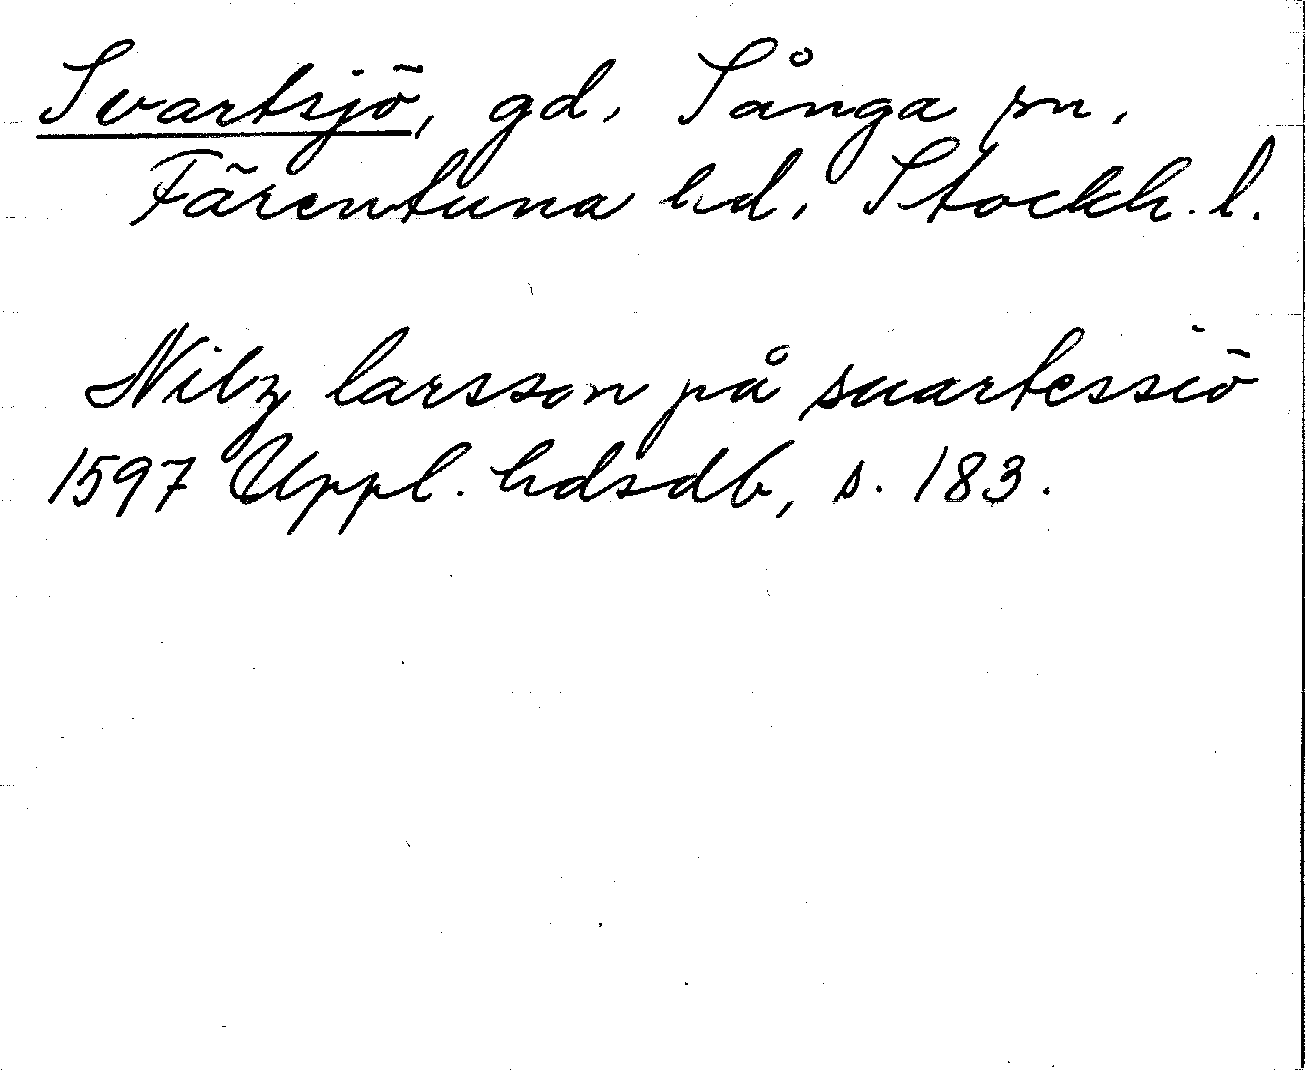 Svartsjö, gd, Sånga sn,
Färentuna hd, Stockh. l.
Nilz larsson på suartessiö
1597 Uppl. hdsdb, s. 183.